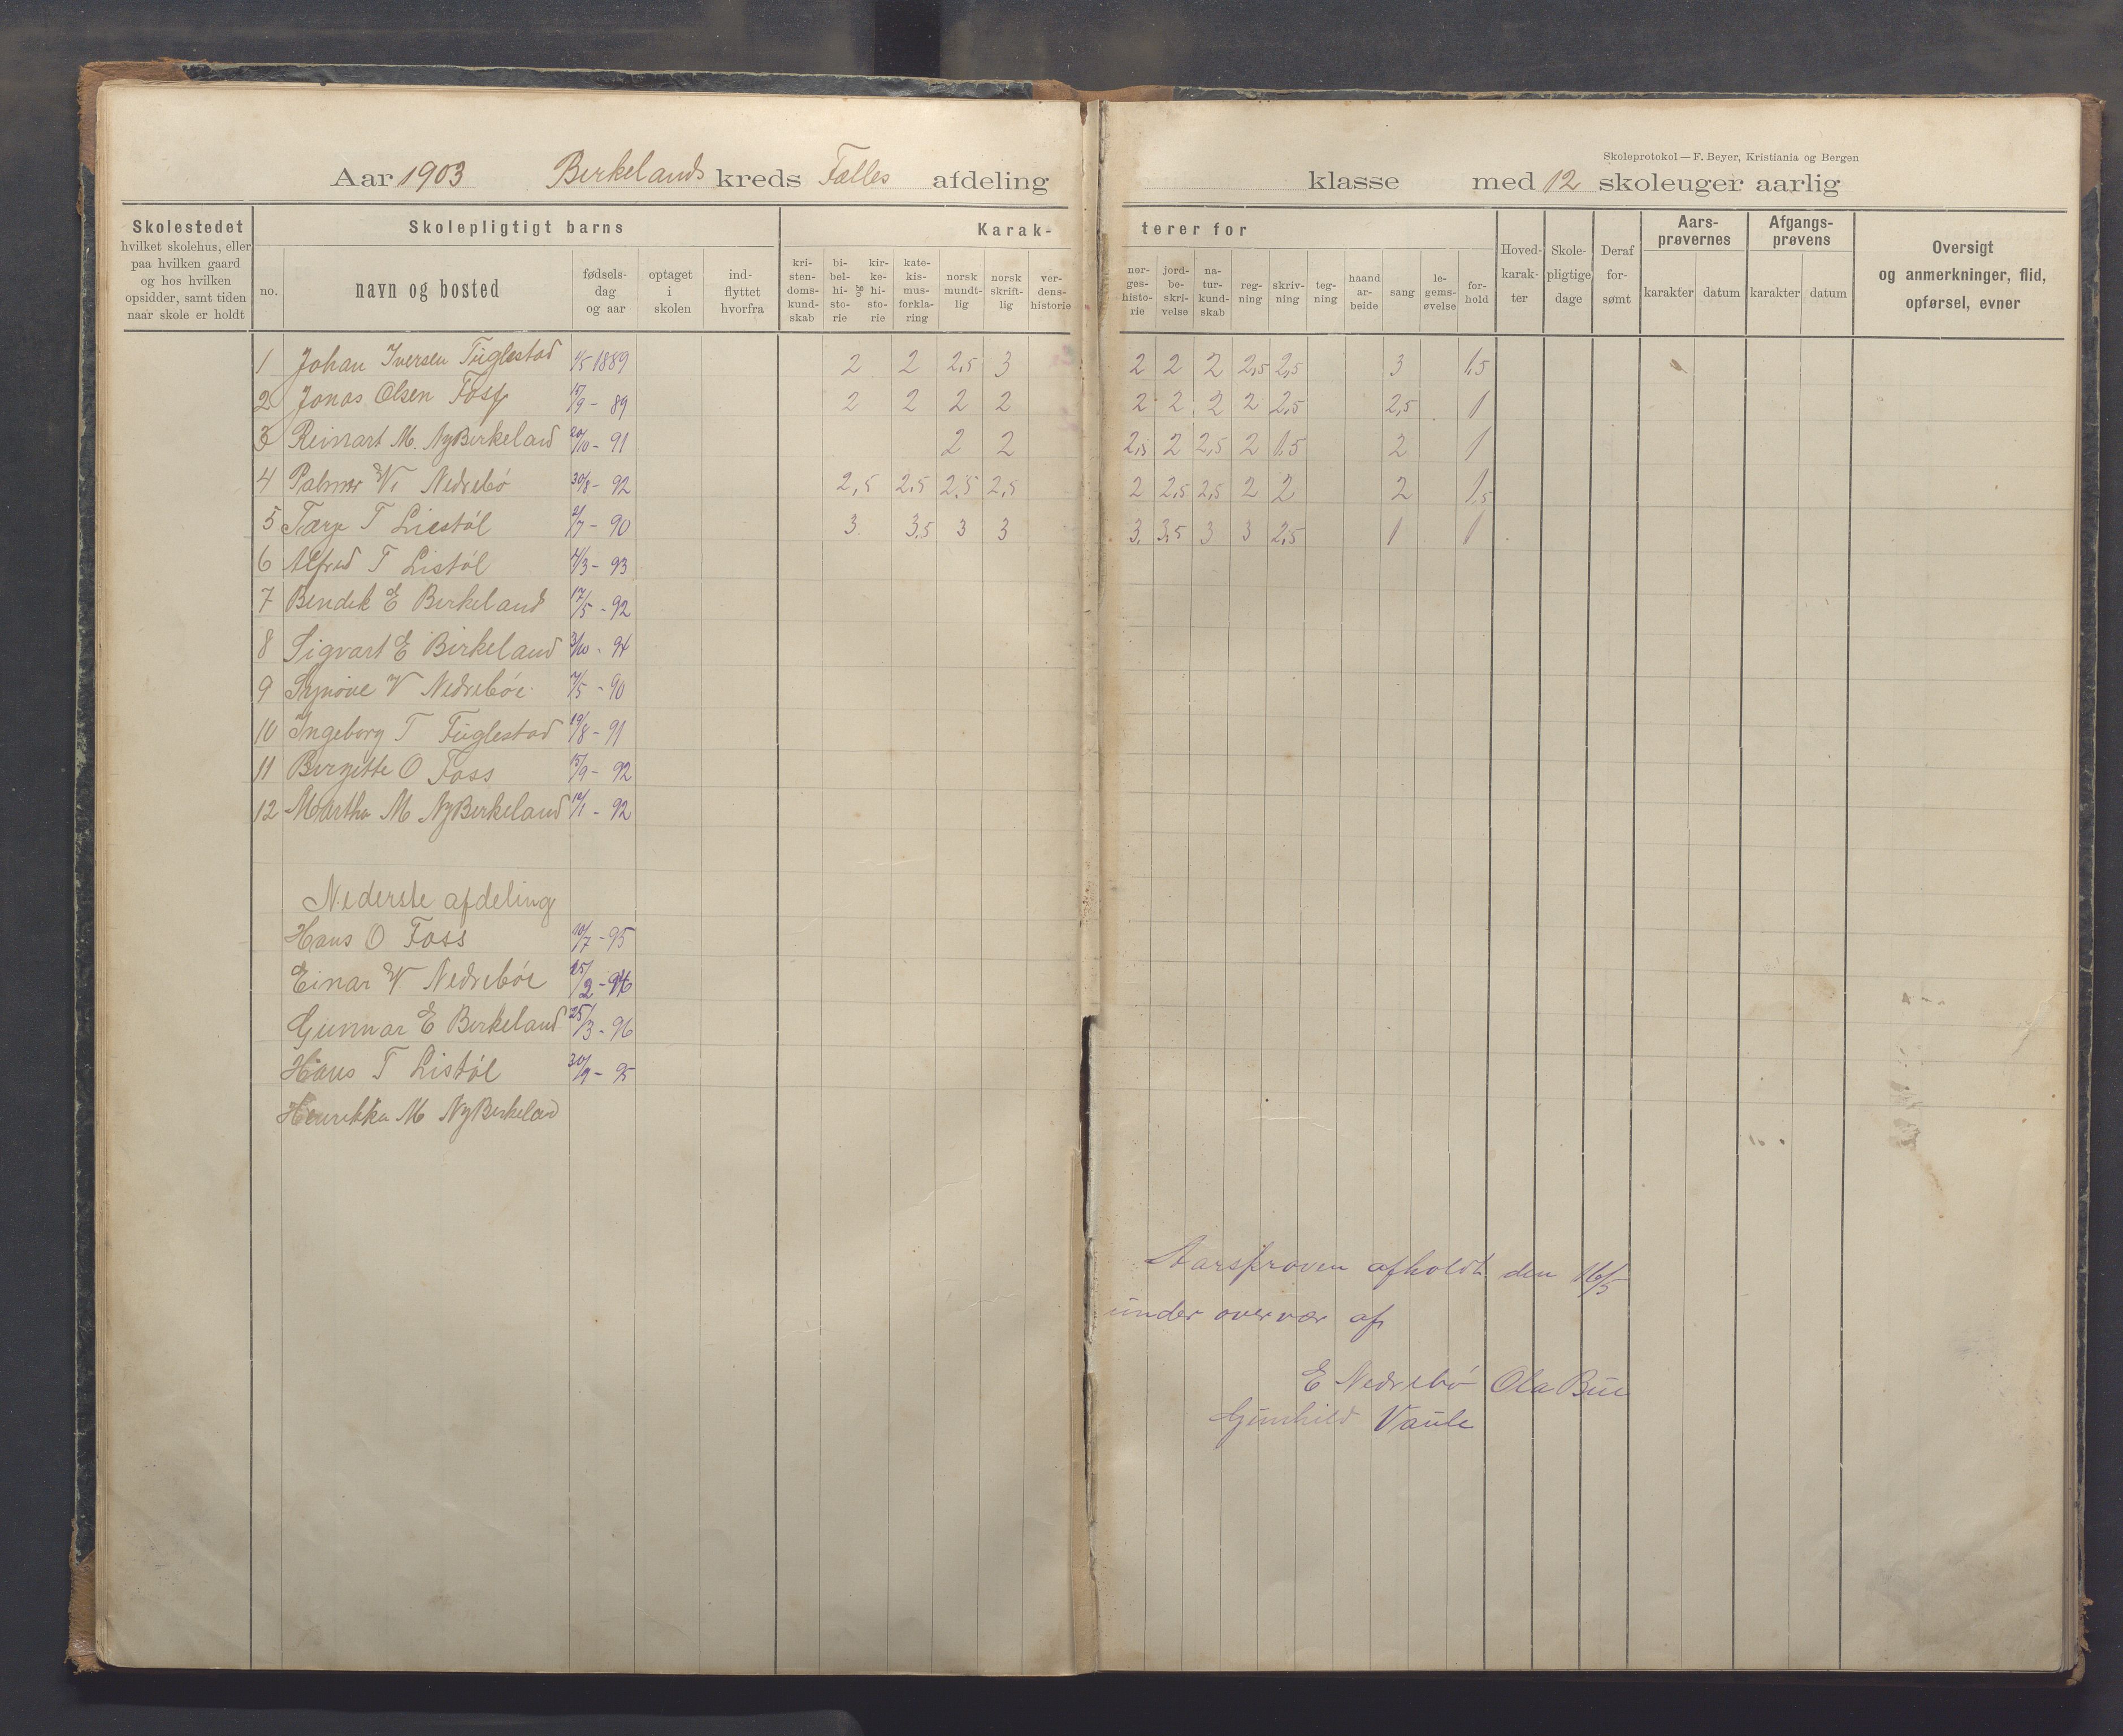 Skoleprotokol — F. Beyer, Kristiania og Bergen
Aar 1903 Birkelands kreds Fælles afdeling klasse med 12 skoleuger aarlig
Skolestedet
hvilket skolehus, eller
paa hvilken gaard
og hos hvilken
opsidder, samt tiden
naar skole er holdt
Skolepligtigt barns
no.
navn og bosted
fødsels-
dag
og aar
optaget
i
skolen
ind-
flyttet
hvorfra
Karak-
terer for
kri-
sten-
doms-
kund-
skab
bi-
bel-
hi-
sto-
rie
og
kir-
ke-
hi-
sto-
rie
kate-
kis-
mus-
forkla-
ring
norsk
mundt-
lig
norsk
skrift-
lig
ver-
dens-
historie
nor-
ges-
histo-
rie
jord-
be-
skri-
velse
na-
tur-
kund-
skab
reg-
ning
skriv-
ning
teg-
ning
haand
ar-
beide
sang
le-
gems-
øvelse
for-
hold
Hoved-
karak-
ter
Skole-
pligtige
dage
Deraf
for-
sømt
Aars-
prøvernes
karakter datum
Afgangs-
prøvens
karakter datum
Oversigt
og anmerkninger, flid,
opførsel, evner
1 Johan Iversen Fuglestad 4/5 1889 2 2 2,5 3 2 2 2 2,5 2,5 3 1,5
2 Jonas Olsen Foss 15/9 - 89 2 2 2 2 2 2 2 2 2,5 2,5 1
3 Reinart M. NyBirkeland 20/10 - 91 2 2 2,5 2 2,5 2 1.5 2 1
4 Palmer V. Nedrebö 30/8 - 92 2,5 2,5 2,5 2,5 2 2,5 2,5 2 2 2 1,5
5 Tarje T Liestöl 2/7 - 90 3 3,5 3 3 3 3,5 3 3 2,5 1 1
6 Alfred T Listöl 4/3 - 93
7 Bendik E Birkeland 17/5 - 92
8 Sigvart E Birkeland 3/10 - 94
9 Synöve V Nedreböe 7/5 - 90
10 Ingeborg T Fuglestad 19/8 - 91
11 Birgitte O Foss 15/9 - 92
12 Martha M NyBirkeland 10/1 - 92
Nederste afdeling
Hans O Foss 10/7 - 95
Einar V Nedreböe 25/2 - 96
Gunnar E Birkeland 25/3 - 96
Hans T Listöl 30/9 - 95
Henrikka M NyBirkeland
Aarsprøven afholdt den 16/5
under overvær af
E Nedrebö Ola Bue
Gunhild Vaule